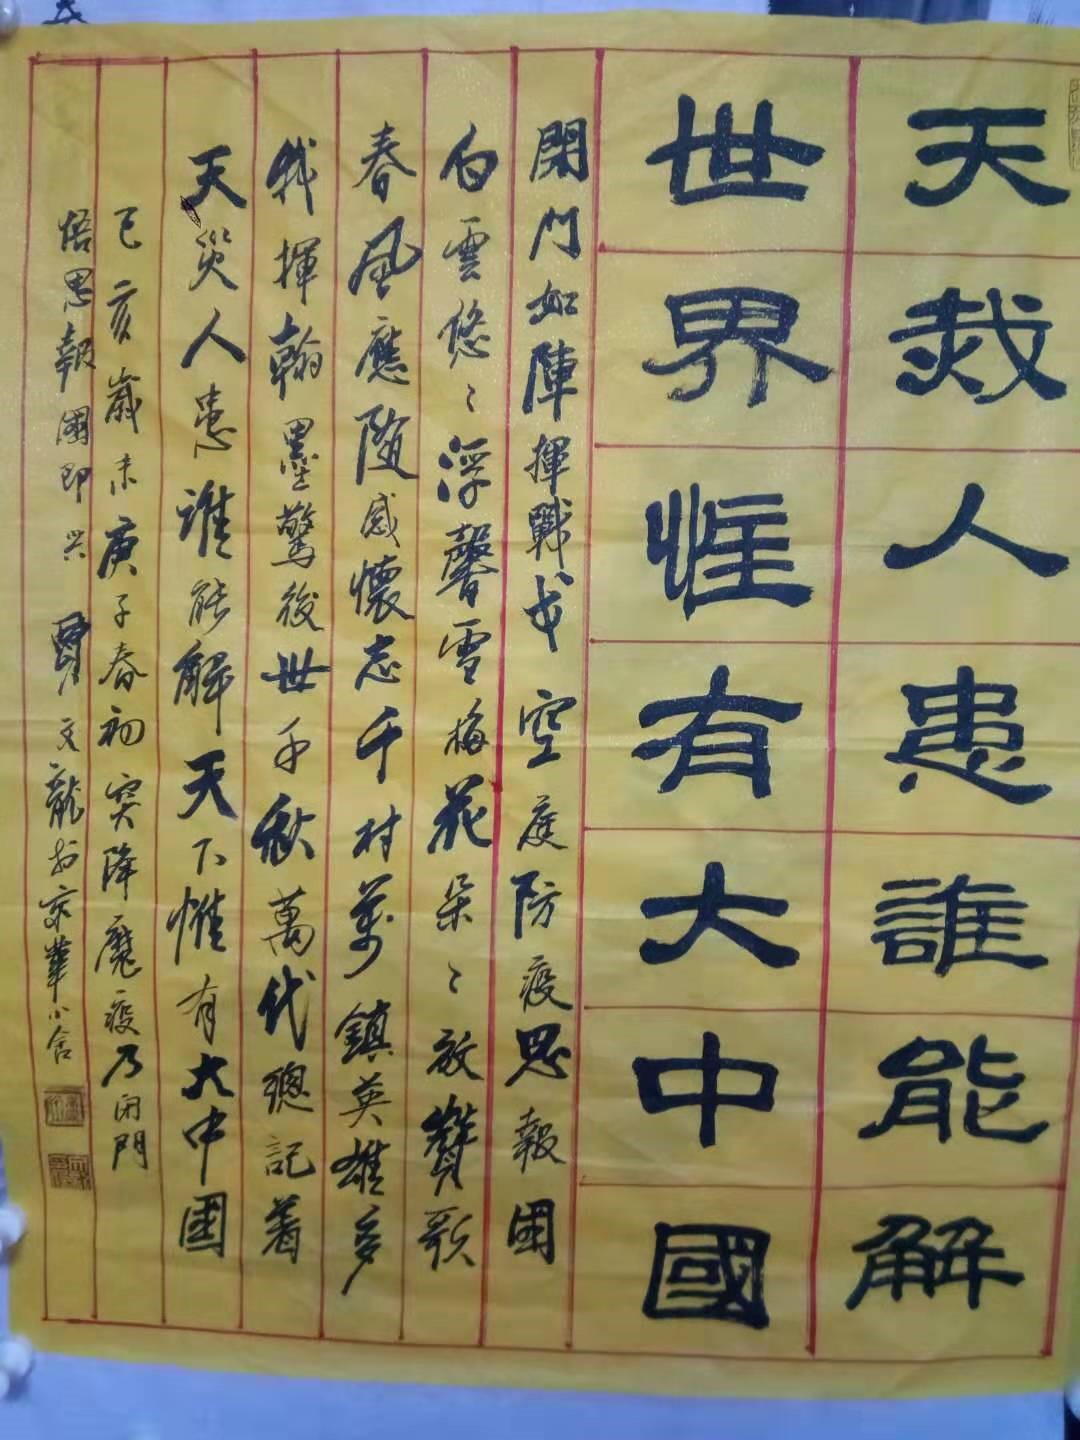 天烖人患誰能解
世界惟有大中國
閉門如陣揮戰戈空庭防疫思報國
白雲悠〻浮馨雪梅花朵〻放贊歌
春風應隨感懷志千村萬鎮英雄多
我揮翰墨驚後世千秋萬代總記着
天災人患誰能解天下惟有大中國
己亥歲末庚子春初突降魔疫乃闭門
悟思報國即兴 賈文龍於京華小舍